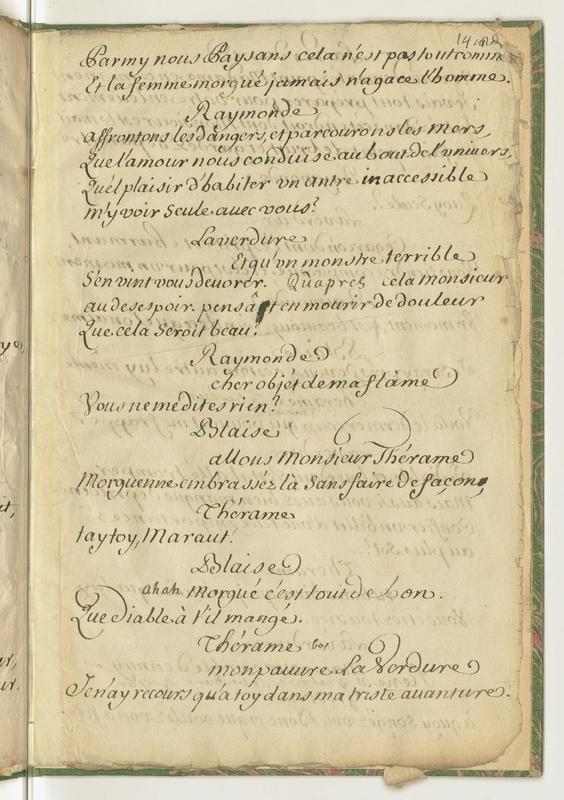 14
Parmy nous Paysans cela n'est pas tout comme
Et la femme morgué jamais n'agace l'homme.
Raymonde
affrontons les dangers, et parcourons les mers,
Que l'amour nous conduise au bout de l'univers,
Quél plaisir d'habiter vn antre inaccessible
m'y voir seule auec vous?
Laverdure
Et qu'vn monstre terrible
S'en vint vous devorer. Quapres cela monsieur
au desespoir. pensât en mourir de douleur
Que cela seroit beau!
Raymonde
cher objét de ma flâme
Vous ne me dites rien?
Blaise
allons Monsieur Thérame
Morguenne embrassez là sans faire de façons
Thérame
tay toy, Maraut.
Blaise
ah ah morgué c'est tout de bon.
Que diable à t'il mangé.
Thérame bas
mon pauure La Verdure
Je n'ay recours qu'a toy dans ma triste auanture.